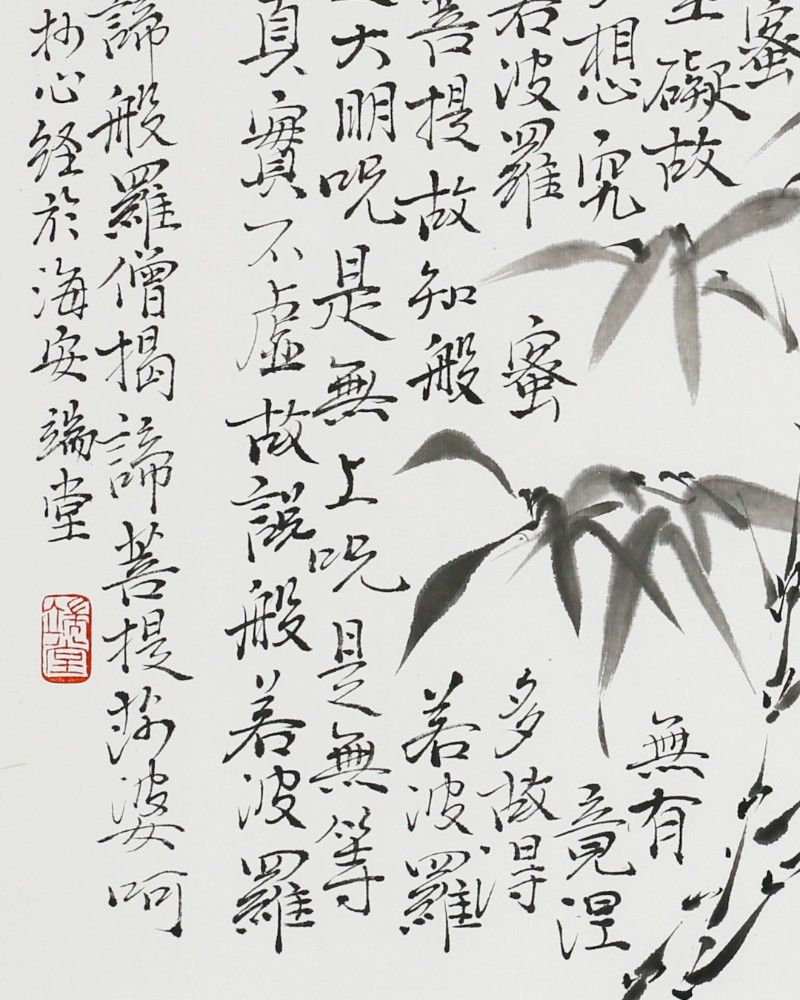 蜜
礙故無有
想究竟涅
若波羅蜜多故得
菩提故知般若波羅
大明呪是無上呪是無等
真實不虛故說般若波羅
諦般羅僧揭諦菩提莎婆呵
抄心経於海安端堂
端堂